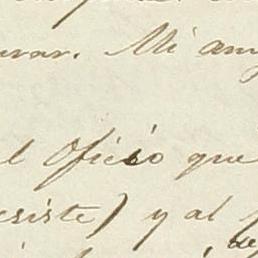 rar. Mi am
l Oficio que
esiste) y al
de